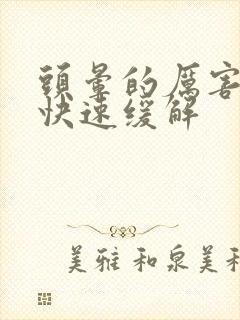 頭暈的厲害
快速缓解
美雅和泉美和